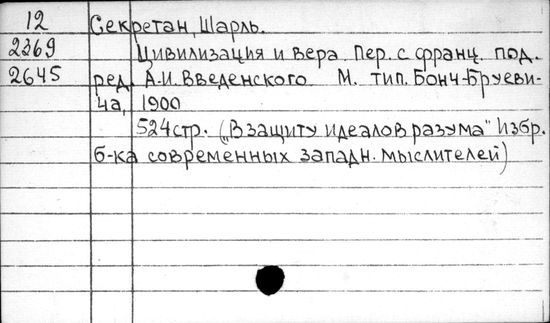 12 Секретан, Шарль.
2369 Цивилизация и вера. Пер. с франц. под.
2645 ред. А.И. Введенского. М. тип. Бонч-Бруеви-
ча, 1900
524 стр. („В защиту идеалов разума" Избр.
б-ка современных западн. мыслителей)